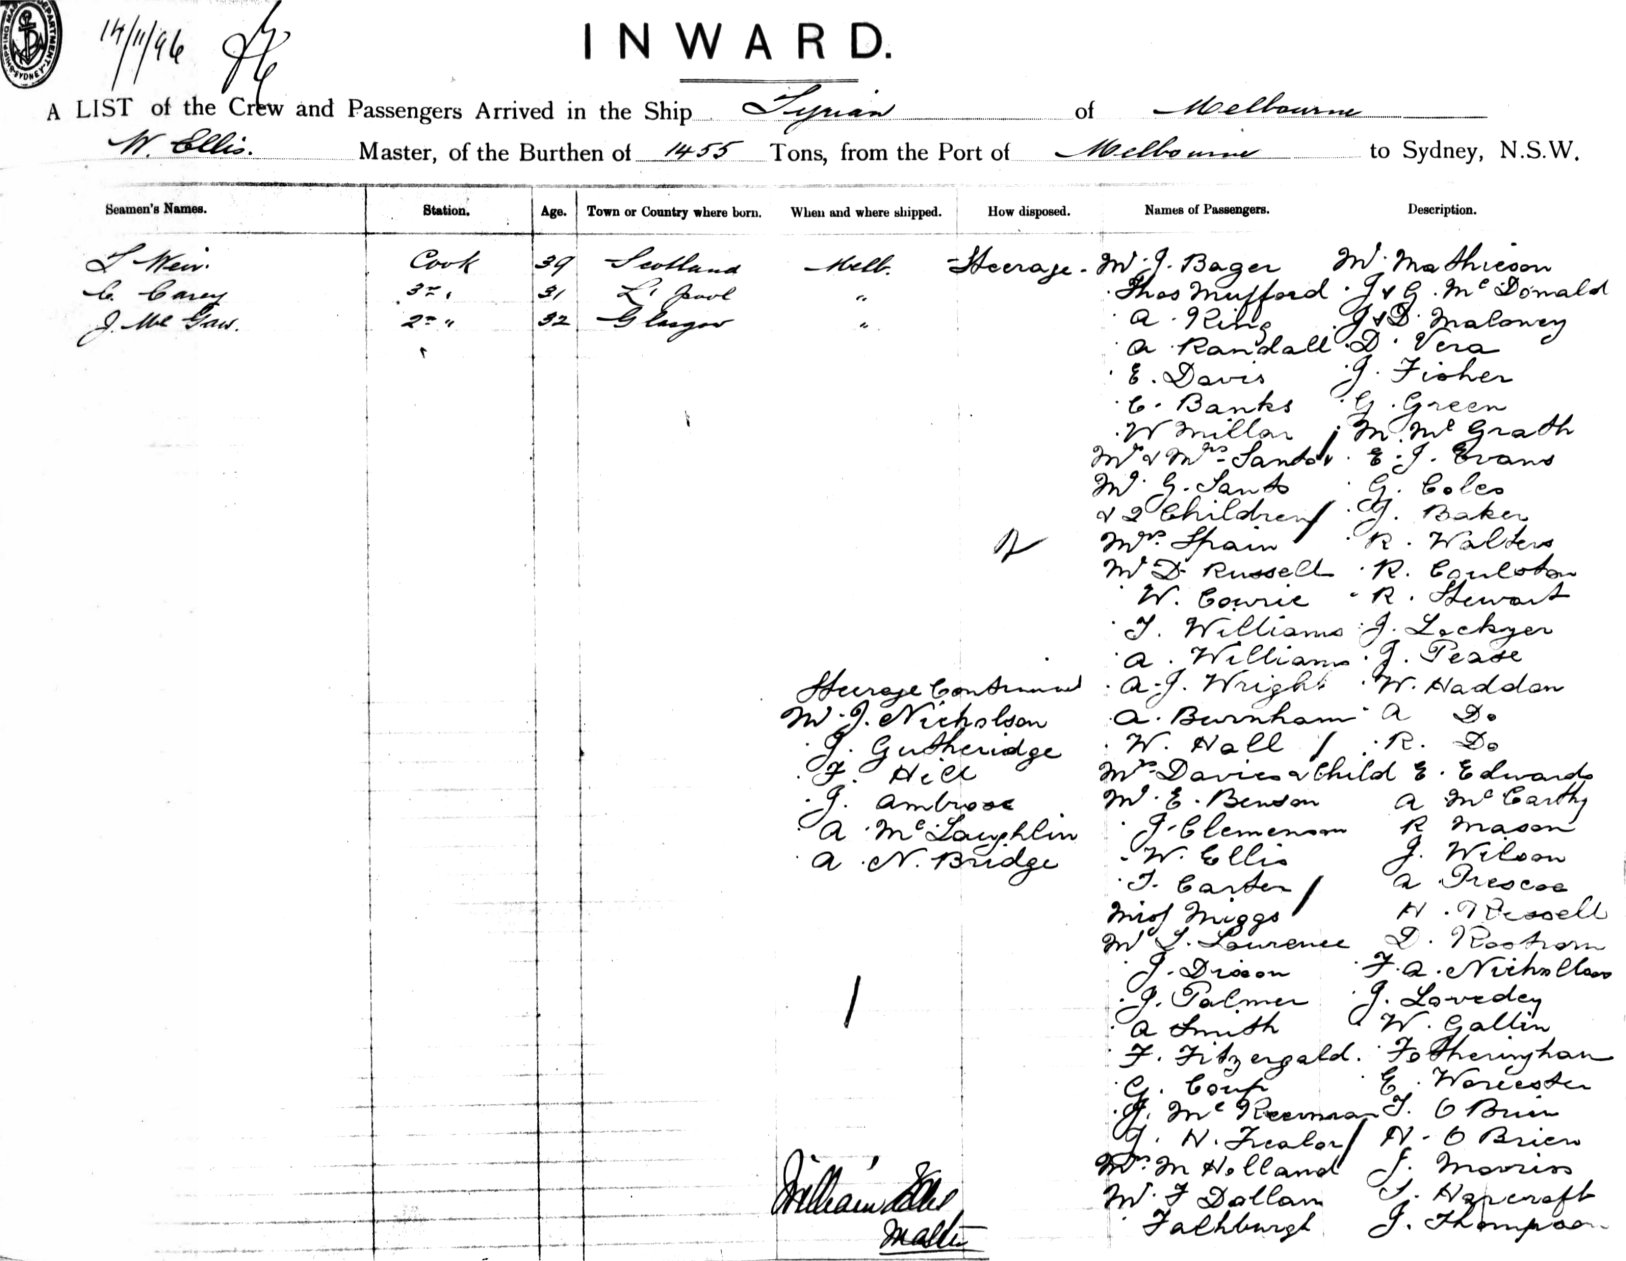 SHIPPING MA DEPARTMENT SYDNEY
14/11/96
INWARD.
A LIST of the Crew and Passengers Arrived in the Ship Tyrian of Melbourne
W. Ellis. Master, of the Burthen of 1455 Tons, from the Port of Melbourne to Sydney, N.S.W.
Seamen's Names. Station. Age. Town or Country where born. When and where shipped. How disposed. Names of Passengers. Description.
Weir. Cook 39 Scotland Melb. Steerage - Mr J. Bager Mr Mathieson
C. Carey 3rd " 31 L'pool " Thos Mufford J & G. McDonald
J. McGaw. 2nd " 32 Glasgow " A. King J & D. Maloney
A Randall D. Vera
E. Davis J. Fisher
C. Banks G. Green
W Millar M. McGrath
Mr & Mrs E. J. Evans
Mr G. Santo G. Coles
& 2 Children J. Baker
Mrs Spain R. Walters
Mr D. Russell R. Coulston
W. Cowie R. Stewart
T. Williams J. Lockyer
A. Williams J. Pease
Steerage Continued A. J. Wright W. Haddon
Mr J. Nicholson A. Burnham A Do
J. Gutheridge W. Hall R. Do
F. Hill Mrs Davies & Child E. Edwards
J. Ambrose Mr E. Benson A McCarthy
A McLaughlin J. Clemenson R Mason
A. N. Bridge W. Ellis J. Wilson
T. Carter A Prescoe
Miss Miggs H. Russell
Mr L. Lawrence D. Rostrom
J. Dixon F. A. Nichollas
J. Palmer J. Lovedey
A Smith W. Gallin
F. Fitzergald. Fotheringham
G. Coup E. Worcester
J. Mc T. O Brien
J. H. H. O Brien
Mrs M Holland J. Morriss
Mr F Dallam Haycroft
William Ellis Falhburgh J. Thompson
Master